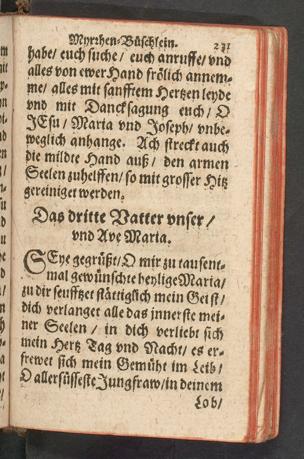 Myrrhen-Büschlein. 231
habe/ euch suche / euch anruffe/ vnd
alles von ewer Hand frölich annem-
me/ alles mit sanfftem Hertzen leyde
vnd mit Dancksagung euch/ O
JEsu / Maria vnd Joseph/ vnbe-
weglich anhange. Ach streckt auch
die mildte Hand auß/ den armen
Seelen zuhelffen/ so mit grosser Hitz
gereiniget werden.
Das dritte Vatter vnser /
vnd Ave Maria.
SEye gegrüßt/ O mir zu tausent-
mal gewünschte heylige Maria/
zu dir seufftzet stättiglich mein Geist/
dich verlanget alle das innerste mei-
ner Seelen / in dich verliebt sich
mein Hertz Tag vnd Nacht/ es er-
frewet sich mein Gemüht im Leib/
O allersüsseste Jungfraw/ in deinem
Lob/